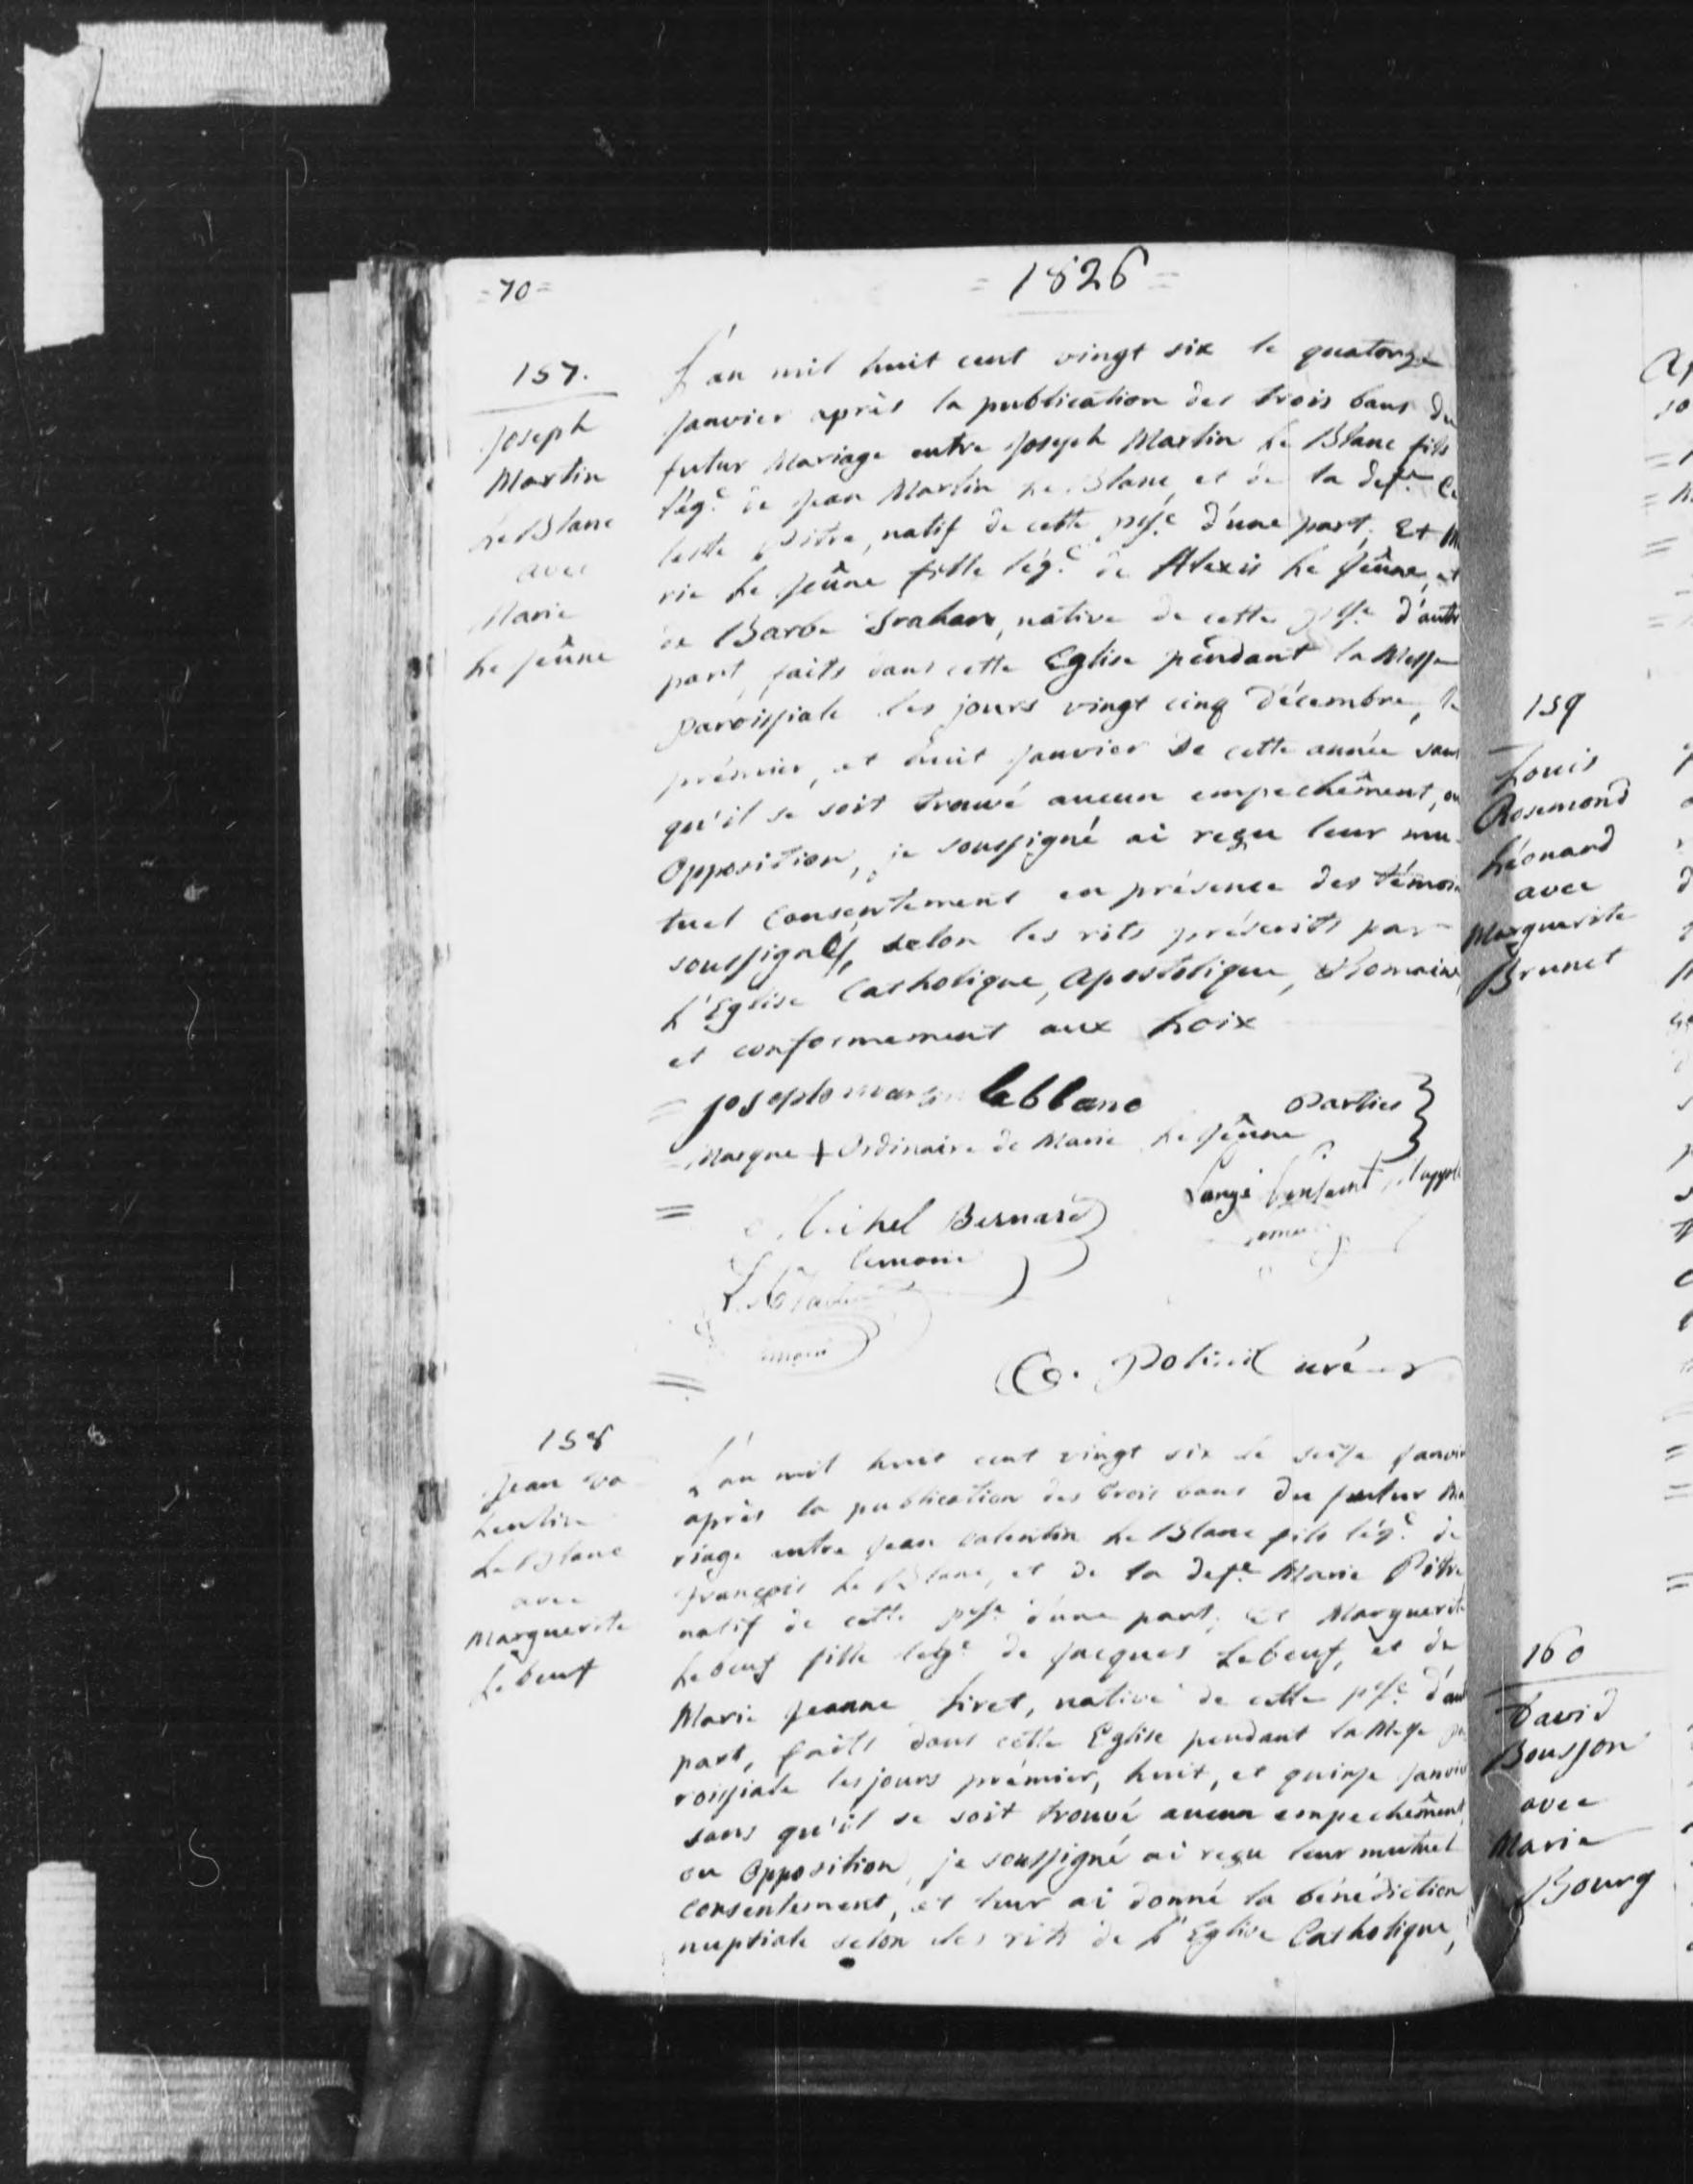 =70=
=1826=
157.
Joseph
Martin
Le Blanc
avec
Marie
Le Jeûne
L'an mil huit cent vingt six le quatorze
Janvier après la publication des trois bans du
futur Mariage entre Joseph Martin Le Blanc fils
lég.e de Jean Martin Le Blanc et de la def.te Ce
leste Pitre, natif de cette psse. d'une part, Et M
rie Le Jeûne fille lég.e de Alexis Le Jeûne, et
de Barbe Trahan, native de cette psse. d'autr
part, faits dans cette Eglise pendant la Messe
paroissiale les jours vingt cinq Décembre, le
prémier, et huit Janvier de cette année sans
qu'il se soit trouvé aucun empechêment, ou
Opposition, je soussigné ai reçu leur mu-
tuel Consentement en présence des témoin
soussignés, selon les rits préscrits par
L'Eglise Catholique, Apostolique, Romaine,
et conformement aux Loix
= joseph martin leblanc
Parties }
= Marque + Ordinaire de Marie Le Jeûne }
= Michel Bernard
temoin
C. Potini curé
158
Jean Va
Lentin
Le Blanc
avec
Marguerite
Lebeuf
L'an mil huit cent vingt six le seize Janvier
après la publication des trois bans du futur Ma
riage entre Jean Valentin Le Blanc fils lég.e de
François Le Blanc, et de la def.te Marie Pitre
natif de cette psse. d'une part, Et Marguerite
Lebeuf fille leg.e de Jacques Lebeuf, et de
Marie Jeanne Liret, native de cette psse. d'aut
part, faits dans cette Eglise pendant la Messe pa
roissiale les jours prémier, huit, et quinze Janvier
sans qu'il se soit trouvé aucun empechêment,
ou Opposition, je soussigné ai reçu leur mutuel
consentement, et leur ai donné la bénédiction
nuptiale selon les rits de L'Eglise Catholique,
159
Louis
Rosemond
Léonard
avec
Marguerite
Brunet
160
David
Bousson
avec
Marie
Bourg